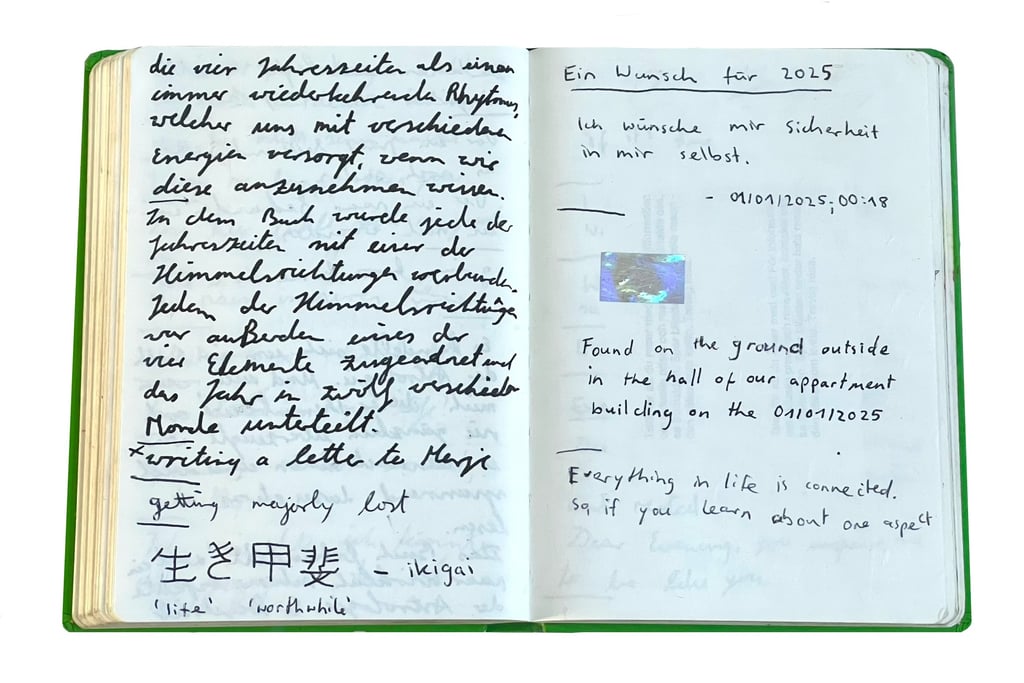 die vier Jahreszeiten als einen
immer wiederkehrenden Rhytmus,
welcher uns mit verschiedenen
Energien versorgt, wenn wir
diese anzunehmen wissen.
In dem Buch wurde jede der
Jahreszeiten mit einer der
Himmelsrichtungen verbunden.
Jedem der Himmelsrichtungen
war außerdem eines der
vier Elemente zugeordnet und
das Jahr in zwölf verschiedene
Monde unterteilt.
*writing a letter to
getting majorly lost
生き甲斐 – ikigai
'life' 'worthwhile'
Ein Wunsch für 2025
Ich wünsche mir Sicherheit
in mir selbst.
- 01/01/2025; 00:18
Found on the ground outside
in the hall of our appartment
building on the 01/01/2025
Everything in life is connected.
So, if you learn about one aspect